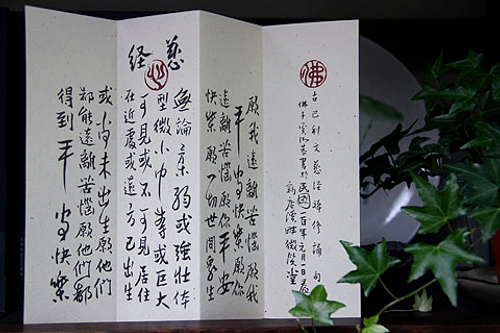 佛
慈心経
願我遠離苦惱願我
平安快樂願你
遠離苦惱願你平安
快樂願一切世間眾生
無論柔弱或強壯体
型微小中等或巨大
可見或不可見居住
在近處或遠方已出生
或尚未出生願他們
都能遠離苦惱願他們都
得到平安快樂
古巴利文慈经 修誦句
佛子奚淞恭書於民國一百年元月一日
新店溪畔微笑堂